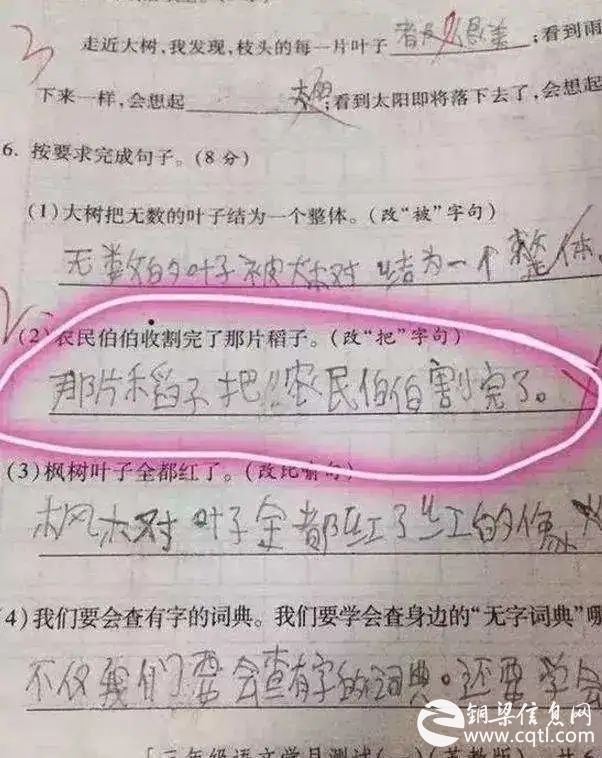 走近大树,我发现,枝头的每一片叶子 ;看到雨
下来一样,会想起 ;看到太阳即将落下去了,会想起
6. 按要求完成句子。(8分)
(1)大树把无数的叶子结为一个整体。(改“被”字句)
无数的叶子被大树结为一个整体。
(2)农民伯伯收割完了那片稻子。(改“把”字句)
那片稻子把农民伯伯割完了。
(3)枫树叶子全都红了。(改比喻句)
枫树叶子全都红了红的像火
4)我们要会查有字的词典。我们要学会查身边的“无字词典”哪
不仅我们要会查有字的词典。还要学会
铜梁信息网
www.cqtl.com